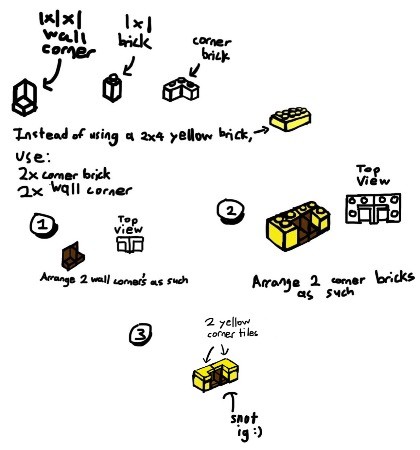 1x1x1
wall
corner
1x1
brick
corner
brick
Instead of using a 2x4 yellow brick,
use:
2x corner brick
2x wall corner
1
Top
View
Arrange 2 wall corners as such
2
Top
View
Arrange 2 corner bricks
as such
3
2 yellow
corner tiles
snot
ig :)